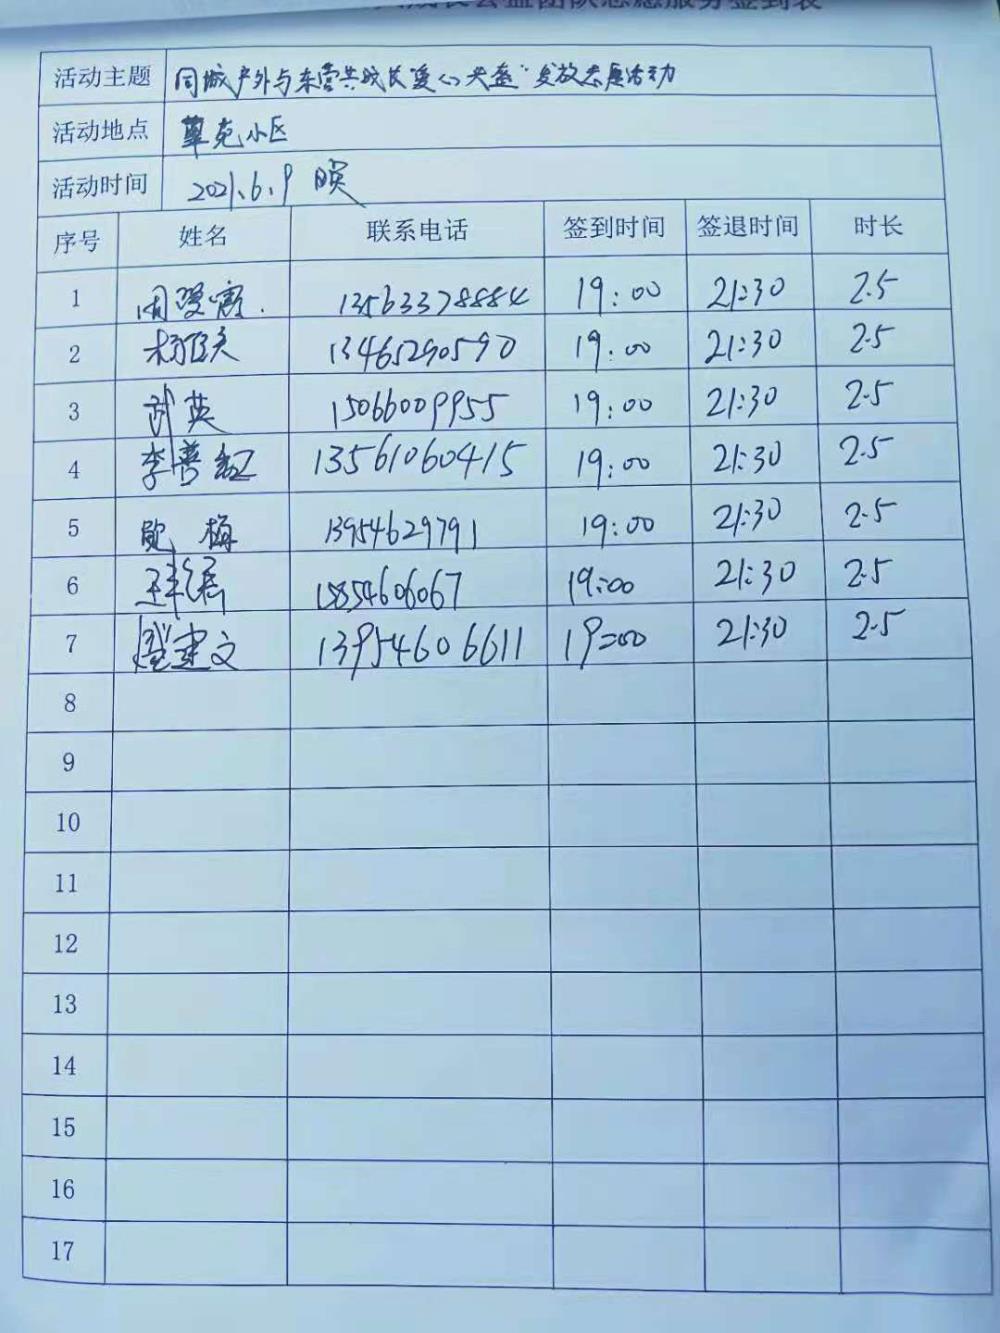 成长公益团队志愿服务签到表
活动主题 同城户外与东营共成长爱心头盔"发放志愿活动
活动地点 小区
活动时间 2021.6.9
序号 姓名 联系电话 签到时间 签退时间 时长
1 13563378884 19:00 21:30 2.5
2 13465290590 19:00 21:30 2.5
3 武英 15066009955 19:00 21:30 2.5
4 李善 13561060415 19:00 21:30 2.5
5 梅 13954629791 19:00 21:30 2.5
6 15854606067 19:00 21:30 2.5
7 建文 13954606611 19:00 21:30 2.5
8
9
10
11
12
13
14
15
16
17